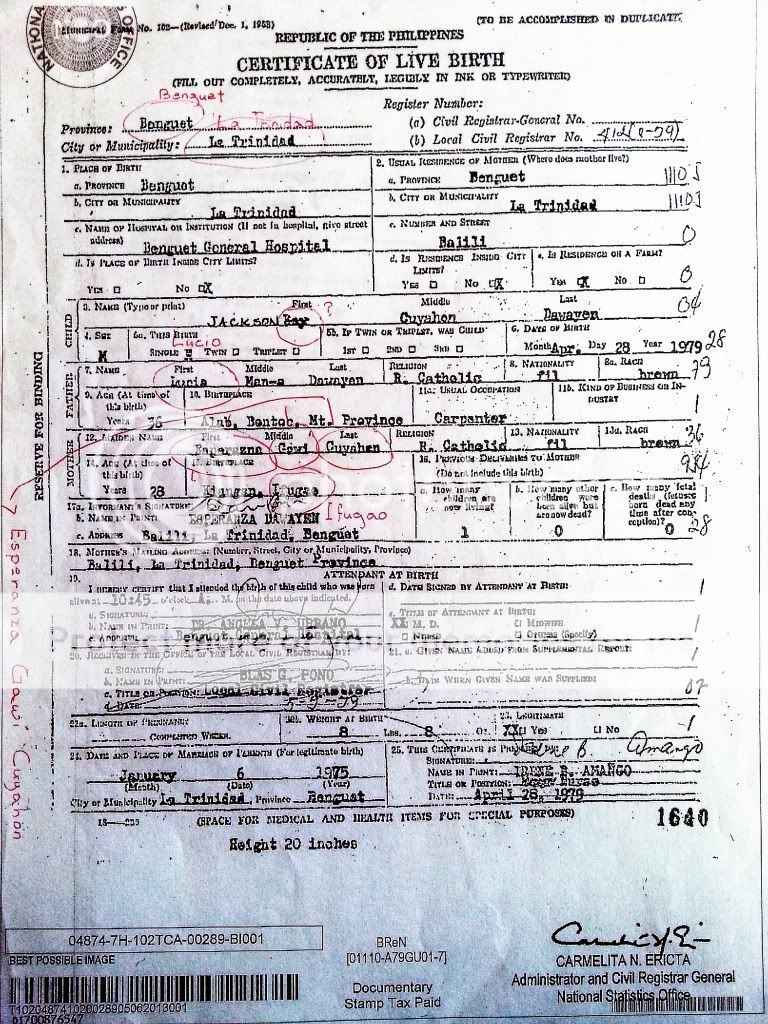 Municipal Form No. 102—(Revised Dec. 1, 1958)
(TO BE ACCOMPLISHED IN DUPLICATE)
REPUBLIC OF THE PHILIPPINES
CERTIFICATE OF LIVE BIRTH
(FILL OUT COMPLETELY, ACCURATELY, LEGIBLY IN INK OR TYPEWRITER)
Benguet
Register Number:
Province: Benguet La Trinidad
(a) Civil Registrar-General No.
City or Municipality: La Trinidad
(b) Local Civil Registrar No. 412(a-79)
1. PLACE OF BIRTH
2. USUAL RESIDENCE OF MOTHER (Where does mother live?)
a. PROVINCE Benguet
a. PROVINCE Benguet
b. CITY OR MUNICIPALITY
La Trinidad
b. CITY OR MUNICIPALITY
La Trinidad
c. NAME OF HOSPITAL OR INSTITUTION (If not in hospital, give street address)
Benguet General Hospital
c. NUMBER AND STREET
Balili
d. IS PLACE OF BIRTH INSIDE CITY LIMITS?
YES NO X
d. IS RESIDENCE INSIDE CITY LIMITS?
YES NO X
e. IS RESIDENCE ON A FARM?
YES X NO
CHILD
3. NAME (Type or print) First Middle Last
JACKSON Ray ? Cuyahon Dawayen
4. SEX
M
5a. THIS BIRTH
SINGLE X TWIN TRIPLET
5b. IF TWIN OR TRIPLET, WAS CHILD
1ST 2ND 3RD
6. DATE OF BIRTH
Month Apr. Day 28 Year 1979
Lucio
FATHER
7. NAME First Middle Last
Lucia Man-a Dawayen
RELIGION
R. Catholic
8. NATIONALITY
fil
8a. RACE
brown
9. AGE (At time of this birth)
Years 36
10. BIRTHPLACE
Alab, Bontoc, Mt. Province
11a. USUAL OCCUPATION
Carpenter
11b. KIND OF BUSINESS OR INDUSTRY
MOTHER
12. MAIDEN NAME First Middle Last
Gawi Cuyahon
RELIGION
R. Catholic
13. NATIONALITY
fil
13a. RACE
brown
14. AGE (At time of this birth)
Years 28
15. BIRTHPLACE
Kiangan, Ifugao
Ifugao
16. PREVIOUS DELIVERIES TO MOTHER
(Do not include this birth)
a. How many children are now living?
1
b. How many other children were born alive but are now dead?
0
c. How many fetal deaths (fetuses born dead any time after conception)?
0
17a. INFORMANT'S SIGNATURE
b. NAME IN PRINT: ESPERANZA DAWAYEN
c. ADDRESS Balili, La Trinidad, Benguet
18. MOTHER'S MAILING ADDRESS: (Number, Street, City or Municipality, Province)
Balili, La Trinidad, Benguet Province
ATTENDANT AT BIRTH
19. I HEREBY CERTIFY that I attended the birth of this child who was born alive at 10:45 o'clock A. M. on the date above indicated.
a. SIGNATURE:
b. NAME IN PRINT: DR. ANGELA V. URBANO
c. ADDRESS: Benguet General Hospital
d. DATE SIGNED BY ATTENDANT AT BIRTH:
e. TITLE OF ATTENDANT AT BIRTH:
XX M. D. MIDWIFE
NURSE OTHERS (Specify)
20. RECEIVED IN THE OFFICE OF THE LOCAL CIVIL REGISTRAR BY:
a. SIGNATURE:
b. NAME IN PRINT: BLAS G. PONO
c. TITLE OR POSITION: Local Civil Registrar
d. DATE: 5-9-79
21. a. GIVEN NAME ADDED FROM SUPPLEMENTAL REPORT:
b. DATE WHEN GIVEN NAME WAS SUPPLIED:
22a. LENGTH OF PREGNANCY
COMPLETED WEEKS.
22b. WEIGHT AT BIRTH
8 LBS. 8 OZ.
23. LEGITIMATE
XX YES NO
24. DATE AND PLACE OF MARRIAGE OF PARENTS (For legitimate birth)
January 6 1975
(Month) (Date) (Year)
City or Municipality La Trinidad, Province Benguet
25. THIS CERTIFICATE IS PREPARED BY:
SIGNATURE: Irene B. Amango
NAME IN PRINT: IRENE B. AMANGO
TITLE OR POSITION:
DATE: April 28, 1979
(SPACE FOR MEDICAL AND HEALTH ITEMS FOR SPECIAL PURPOSES)
1640
Height 20 inches
RESERVE FOR BINDING
Esperanza "Gawi" Cuyahon
04874-7H-102TCA-00289-BI001
BEST POSSIBLE IMAGE
T102048741020028905062013001
01700876547
BReN
[01110-A79GU01-7]
Documentary
Stamp Tax Paid
CARMELITA N. ERICTA
Administrator and Civil Registrar General
National Statistics Office